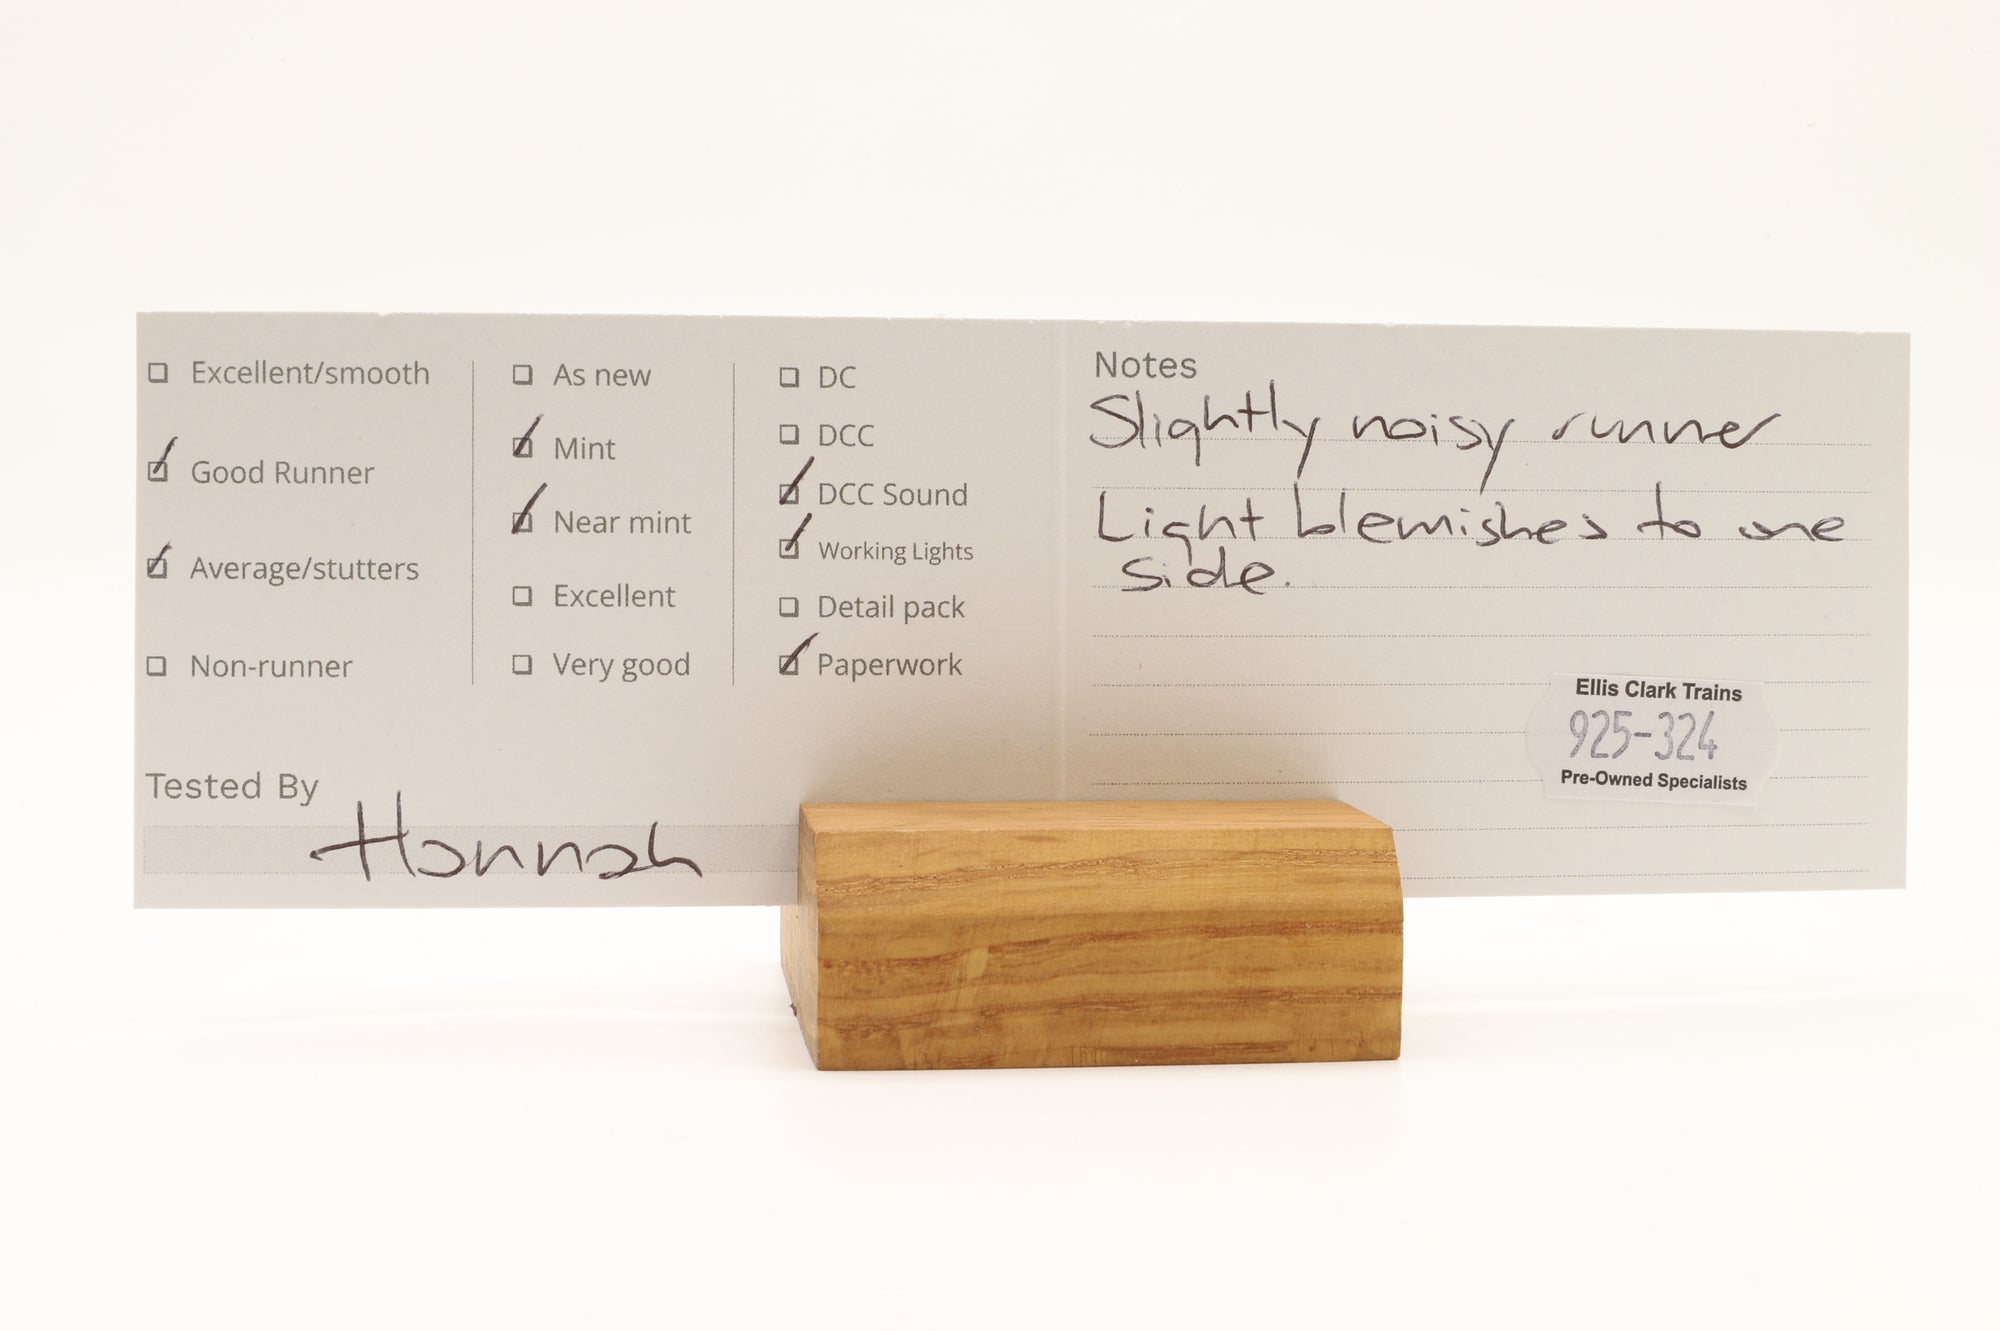 Excellent/smooth
Good Runner
Average/stutters
Non-runner
As new
Mint
Near mint
Excellent
Very good
DC
DCC
DCC Sound
Working Lights
Detail pack
Paperwork
Tested By
Hannah
Notes
Slightly noisy runner
Light blemishes to one
side.
Ellis Clark Trains
925-324
Pre-Owned Specialists